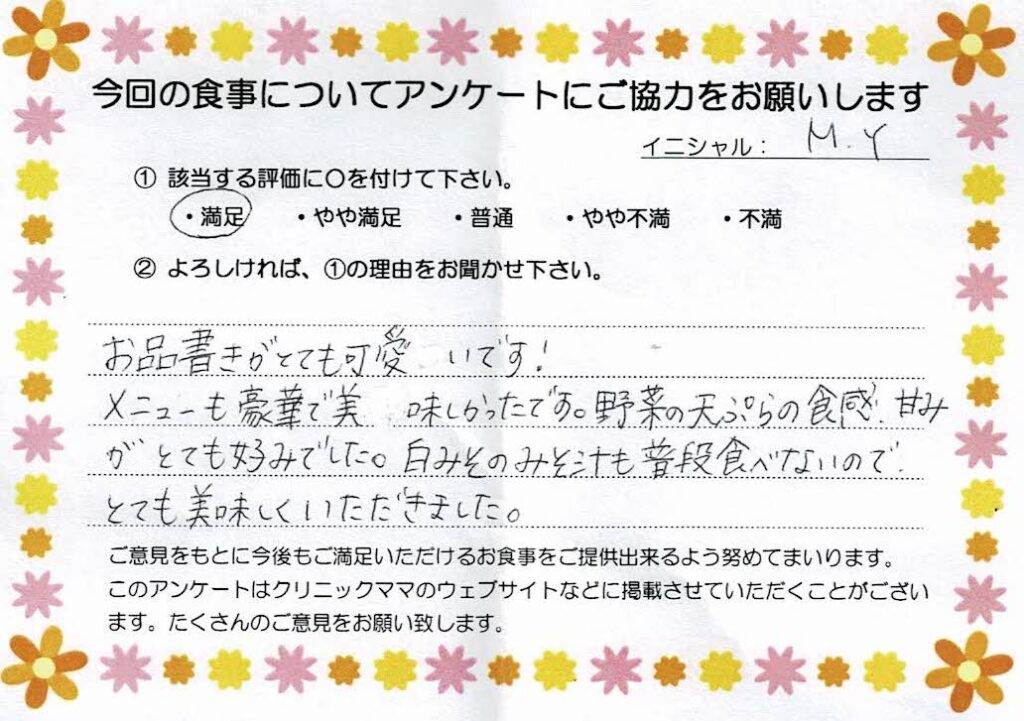 今回の食事についてアンケートにご協力をお願いします
イニシャル： M.Y
① 該当する評価に〇を付けて下さい。
・満足 ・やや満足 ・普通 ・やや不満 ・不満
② よろしければ、①の理由をお聞かせ下さい。
お品書きがとても可愛いです！
メニューも豪華で美味しかったです。野菜の天ぷらの食感、甘み
がとても好みでした。白みそのみそ汁も普段食べないので、
とても美味しくいただきました。
ご意見をもとに今後もご満足いただけるお食事をご提供出来るよう努めてまいります。
このアンケートはクリニックママのウェブサイトなどに掲載させていただくことがござい
ます。たくさんのご意見をお願い致します。